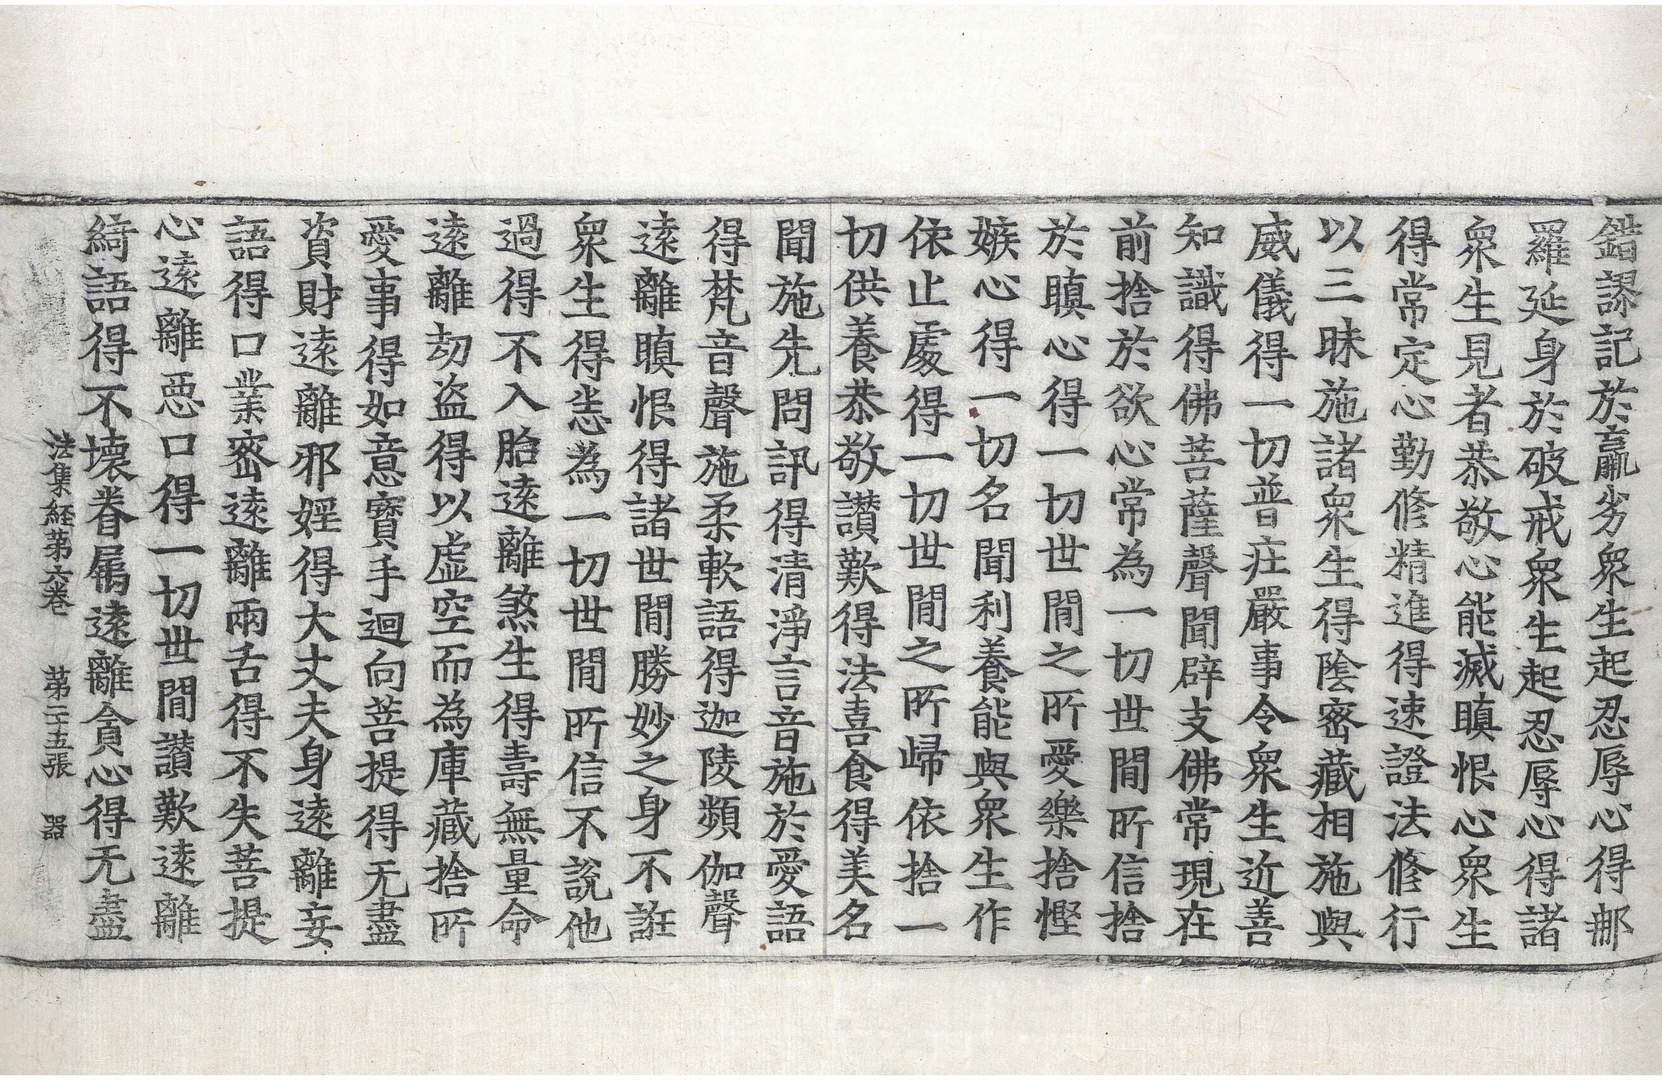 錯謬記於羸劣衆生起忍辱心得那
羅延身於破戒衆生起忍辱心得諸
衆生見者恭敬心能滅瞋恨心衆生
得常定心勤修精進得速證法修行
以三昧施諸衆生得陰密藏相施與
威儀得一切普莊嚴事令衆生近善
知識得佛菩薩聲聞辟支佛常現在
前捨於欲心常為一切世間所信捨
於瞋心得一切世間之所愛樂捨慳
嫉心得一切名聞利養能與衆生作
依止處得一切世間之所歸依捨一
切供養恭敬讃歎得法喜食得美名
聞施先問訊得清淨言音施於愛語
得梵音聲施柔軟語得迦陵頻伽聲
遠離瞋恨得諸世間勝妙之身不誑
衆生得恙為一切世間所信不說他
過得不入胎遠離煞生得壽無量命
遠離劫盜得以虛空而為庫藏捨所
愛事得如意寶手迴向菩提得无盡
資財遠離邪婬得大丈夫身遠離妄
語得口業密遠離兩舌得不失菩提
心遠離惡口得一切世間讃歎遠離
綺語得不壞眷屬遠離貪心得无盡
法集経第六卷 第二十五張 器